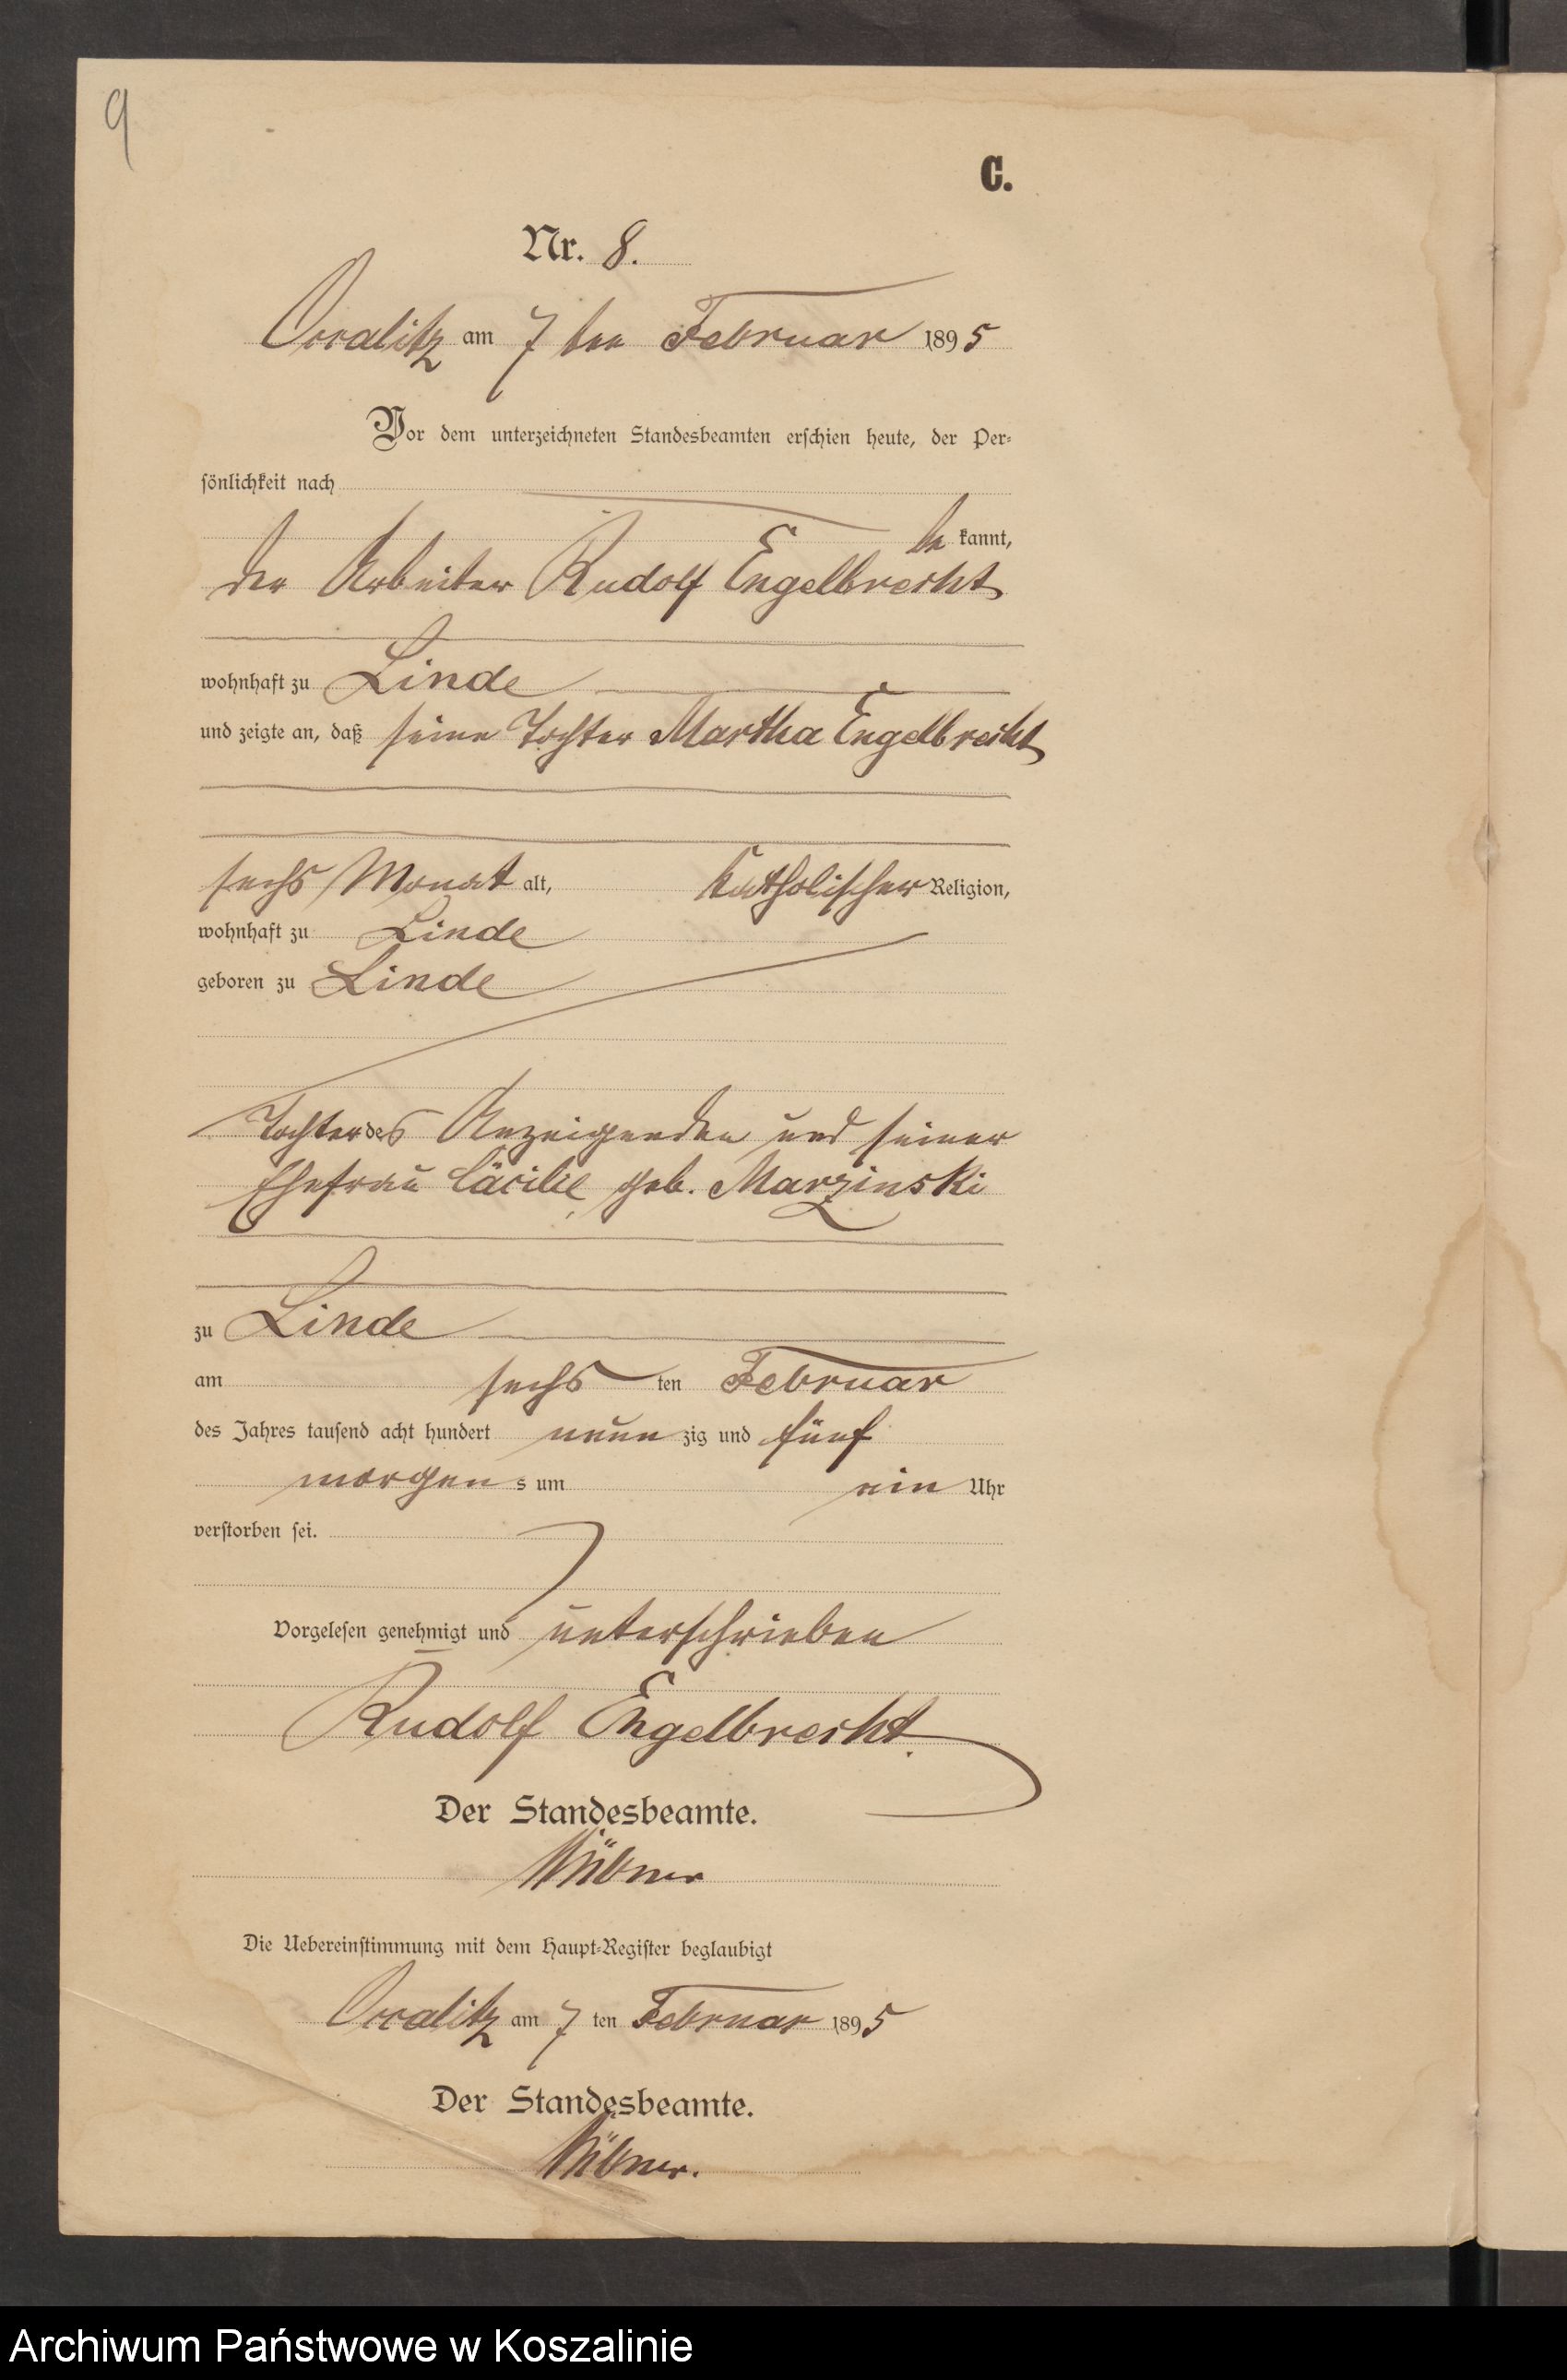 9
C.
Nr. 8.
am 7 ten Februar 1895
Vor dem unterzeichneten Standesbeamten erschien heute, der Per-
sönlichkeit nach
be kannt,
der Arbeiter Rudolf Engelbrecht
wohnhaft zu Linde
und zeigte an, daß seine Tochter Martha Engelbrecht
sechs Monat alt, katholischer Religion,
wohnhaft zu Linde
geboren zu Linde
Tochter des Anzeigenden und seiner
Ehefrau Cäcilie geb. Marzinski
zu Linde
am sechs ten Februar
des Jahres tausend acht hundert neun zig und fünf
morgen s um ein Uhr
verstorben sei.
Vorgelesen genehmigt und unterschrieben
Rudolf Engelbrecht
Der Standesbeamte.
Die Uebereinstimmung mit dem Haupt-Register beglaubigt
am 7 ten Februar 1895
Der Standesbeamte.
Archiwum Państwowe w Koszalinie